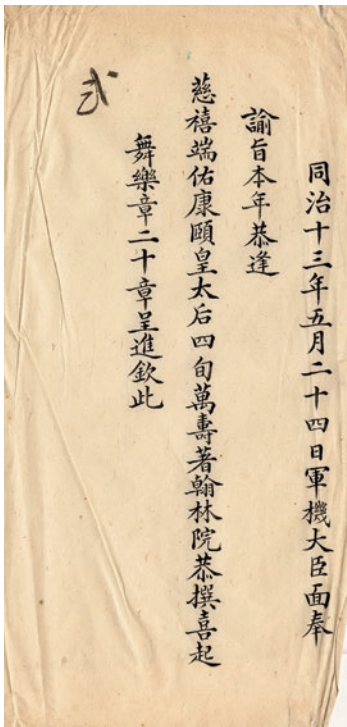 同治十三年五月二十四日軍機大臣面奉
諭旨本年恭逢
慈禧端佑康頤皇太后四旬萬壽著翰林院恭撰喜起
舞樂章二十章呈進欽此